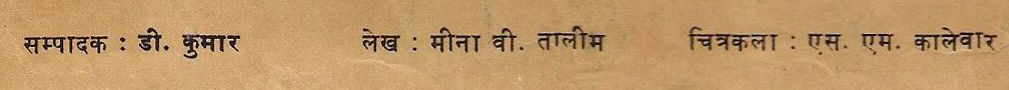 सम्पादक : डी. कुमार लेख : मीना वी. तालीम चित्रकला : एस. एम. कालेवार